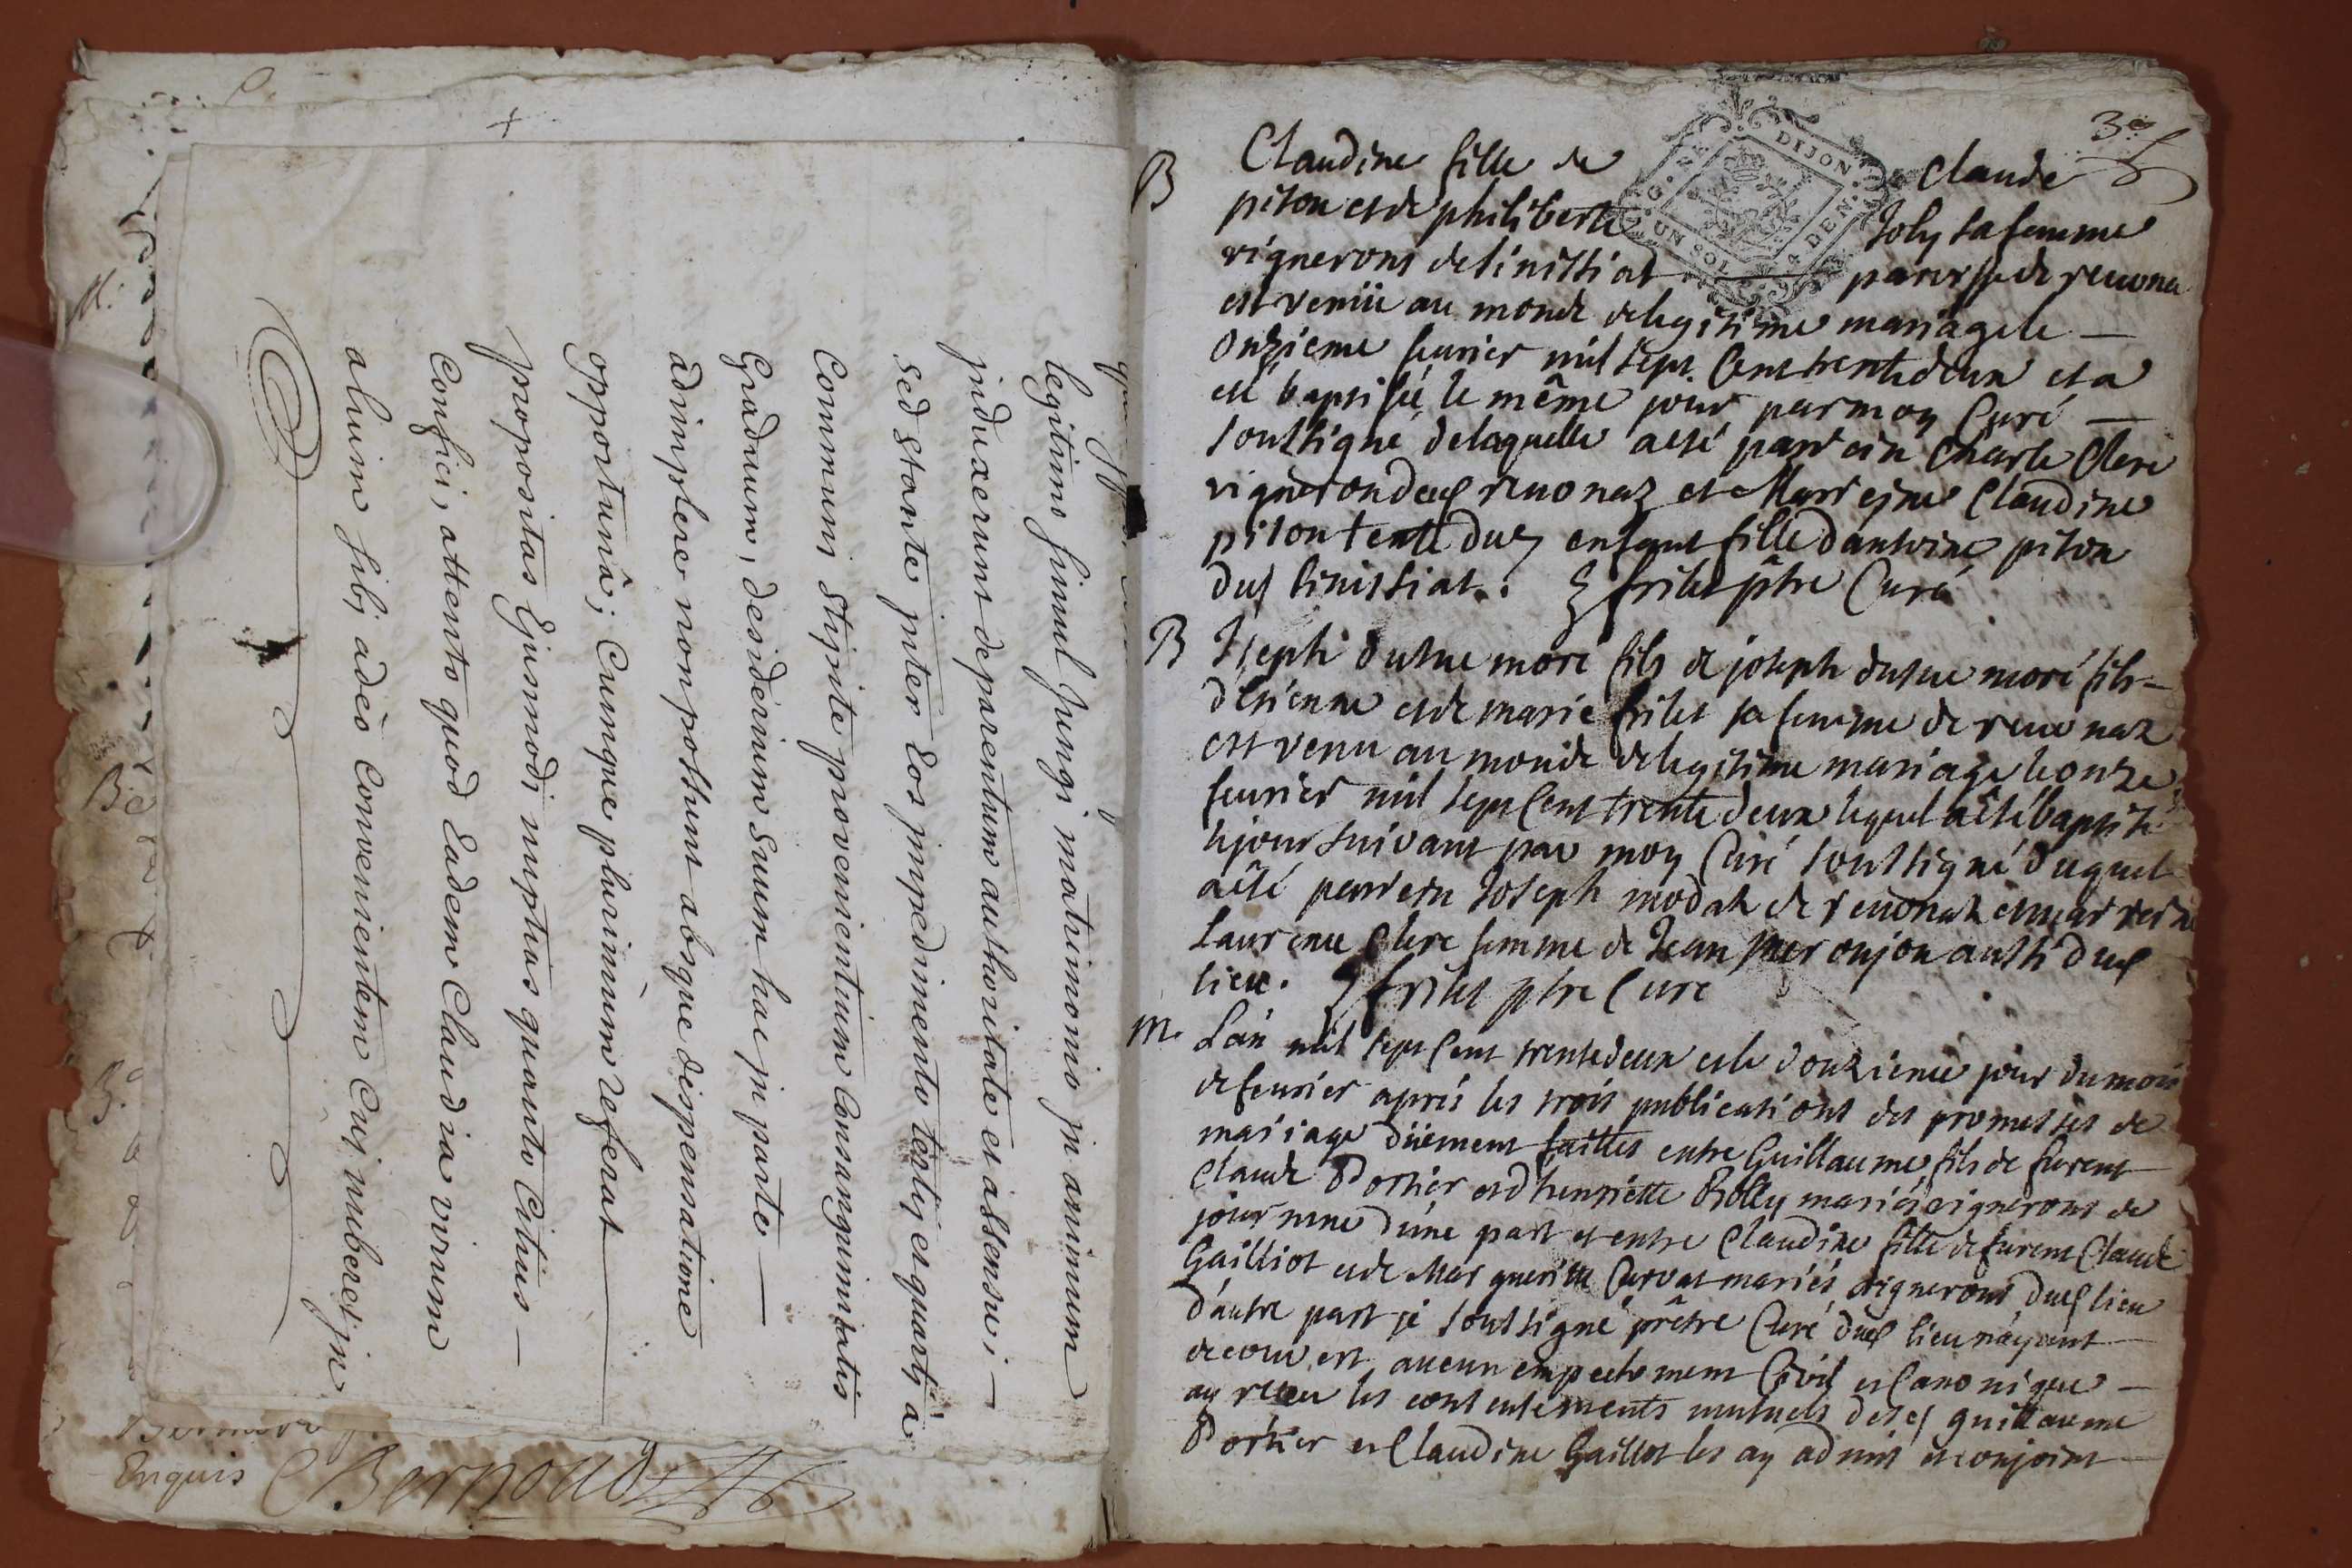 legitimo simul Jungi matrimonio in animum
induxerunt de parentum authoritate et assensu; —
sed stante inter Eos impedimento tertij et quarti à
Communi stipite provenientium Consanguinitatis
Graduum, desiderium suum hac in parte —
adimplere non possunt absque dispensatione
opportunâ; Cumque plurimum referat
propositas Ejusmodi nuptias quanto Citius —
Confici, attento quod Eadem Claudia virum
alium sibi adeò Convenientem Cui nuberet in
Enquis
Bernoud
3e
DIJON
G. NE
UN SOL 4 DEN.
B Claudine fille de Claude
piton et de philiberte Joly sa femme
vignerons de sinissiat paroisse de reuona
est venüe au monde de legitime mariage le —
onzieme feurier mil sept Cent trente deux et a
esté baptisée le même jour par moy Curé —
soussigné de laquelle a esté parrein Charle Clere
vigneron dud reuonaz et Marreine Claudine
piton tente dud enfant fille d'antoine piton
dud sinissiat. frilet ptre Curé
B Joseph dutue moré fils de joseph dutue moré fils —
d'etienne et de marie frilet sa femme de reuonaz
est venu au monde de legitime mariage le onze
feurier mil sept Cent trente deux lequel a esté baptisé
le jour suivant par moy Curé soussigné duquel
a été parrein Joseph modaz de reuonaz et marreine
Laurence Clere femme de Jean peronjon aussi dud
lieu. frilet ptre Curé
M. L'an mil sept Cent trente deux et le douzieme jour du mois
de feurier après les trois publications des promesses de
mariage düement faittes entre Guillaume fils de furent
Claude Portier et d'henriette Bolly mariés vignerons de
journan d'une part et entre Claudine fille de furent Claude
Gailliot et de Marguerite Curvat mariés vignerons dud lieu
d'autre part je soussigné prêtre Curé dud lieu n'ayant —
decouvert aucun empechement Civil et Canonique —
ay reçeu les consentements mutuels desd guillaume
Portier et Claudine Gaillot les ay admis et conjoint —